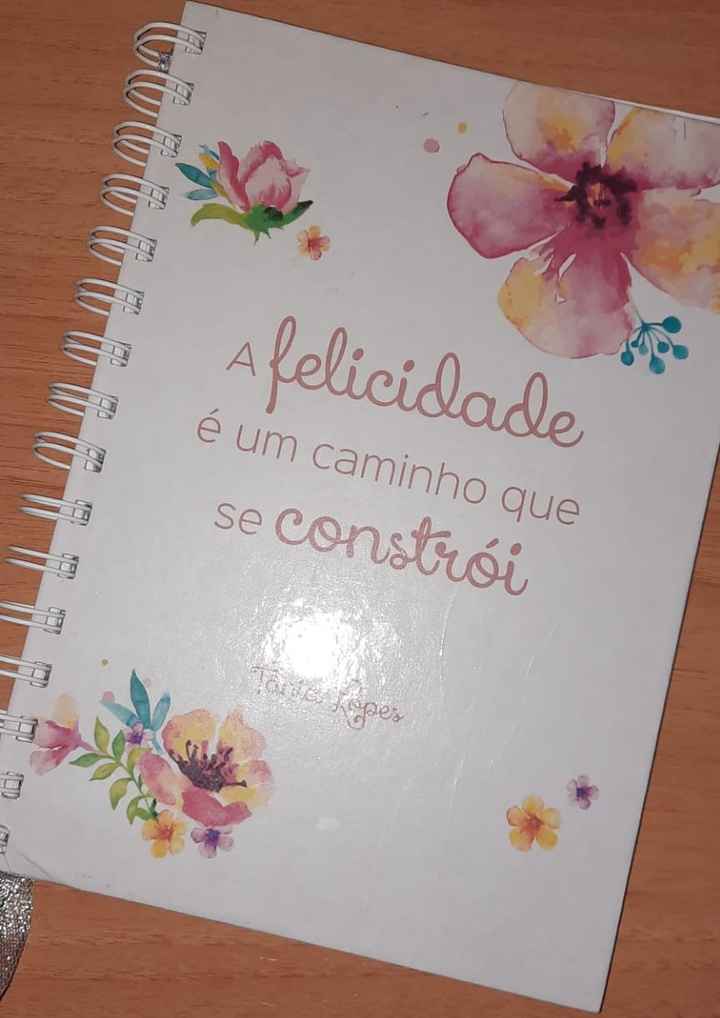 A felicidade
é um caminho que
se constrói
Lopes